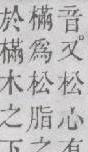 音又松心有
樠爲松脂之
於樠木之下